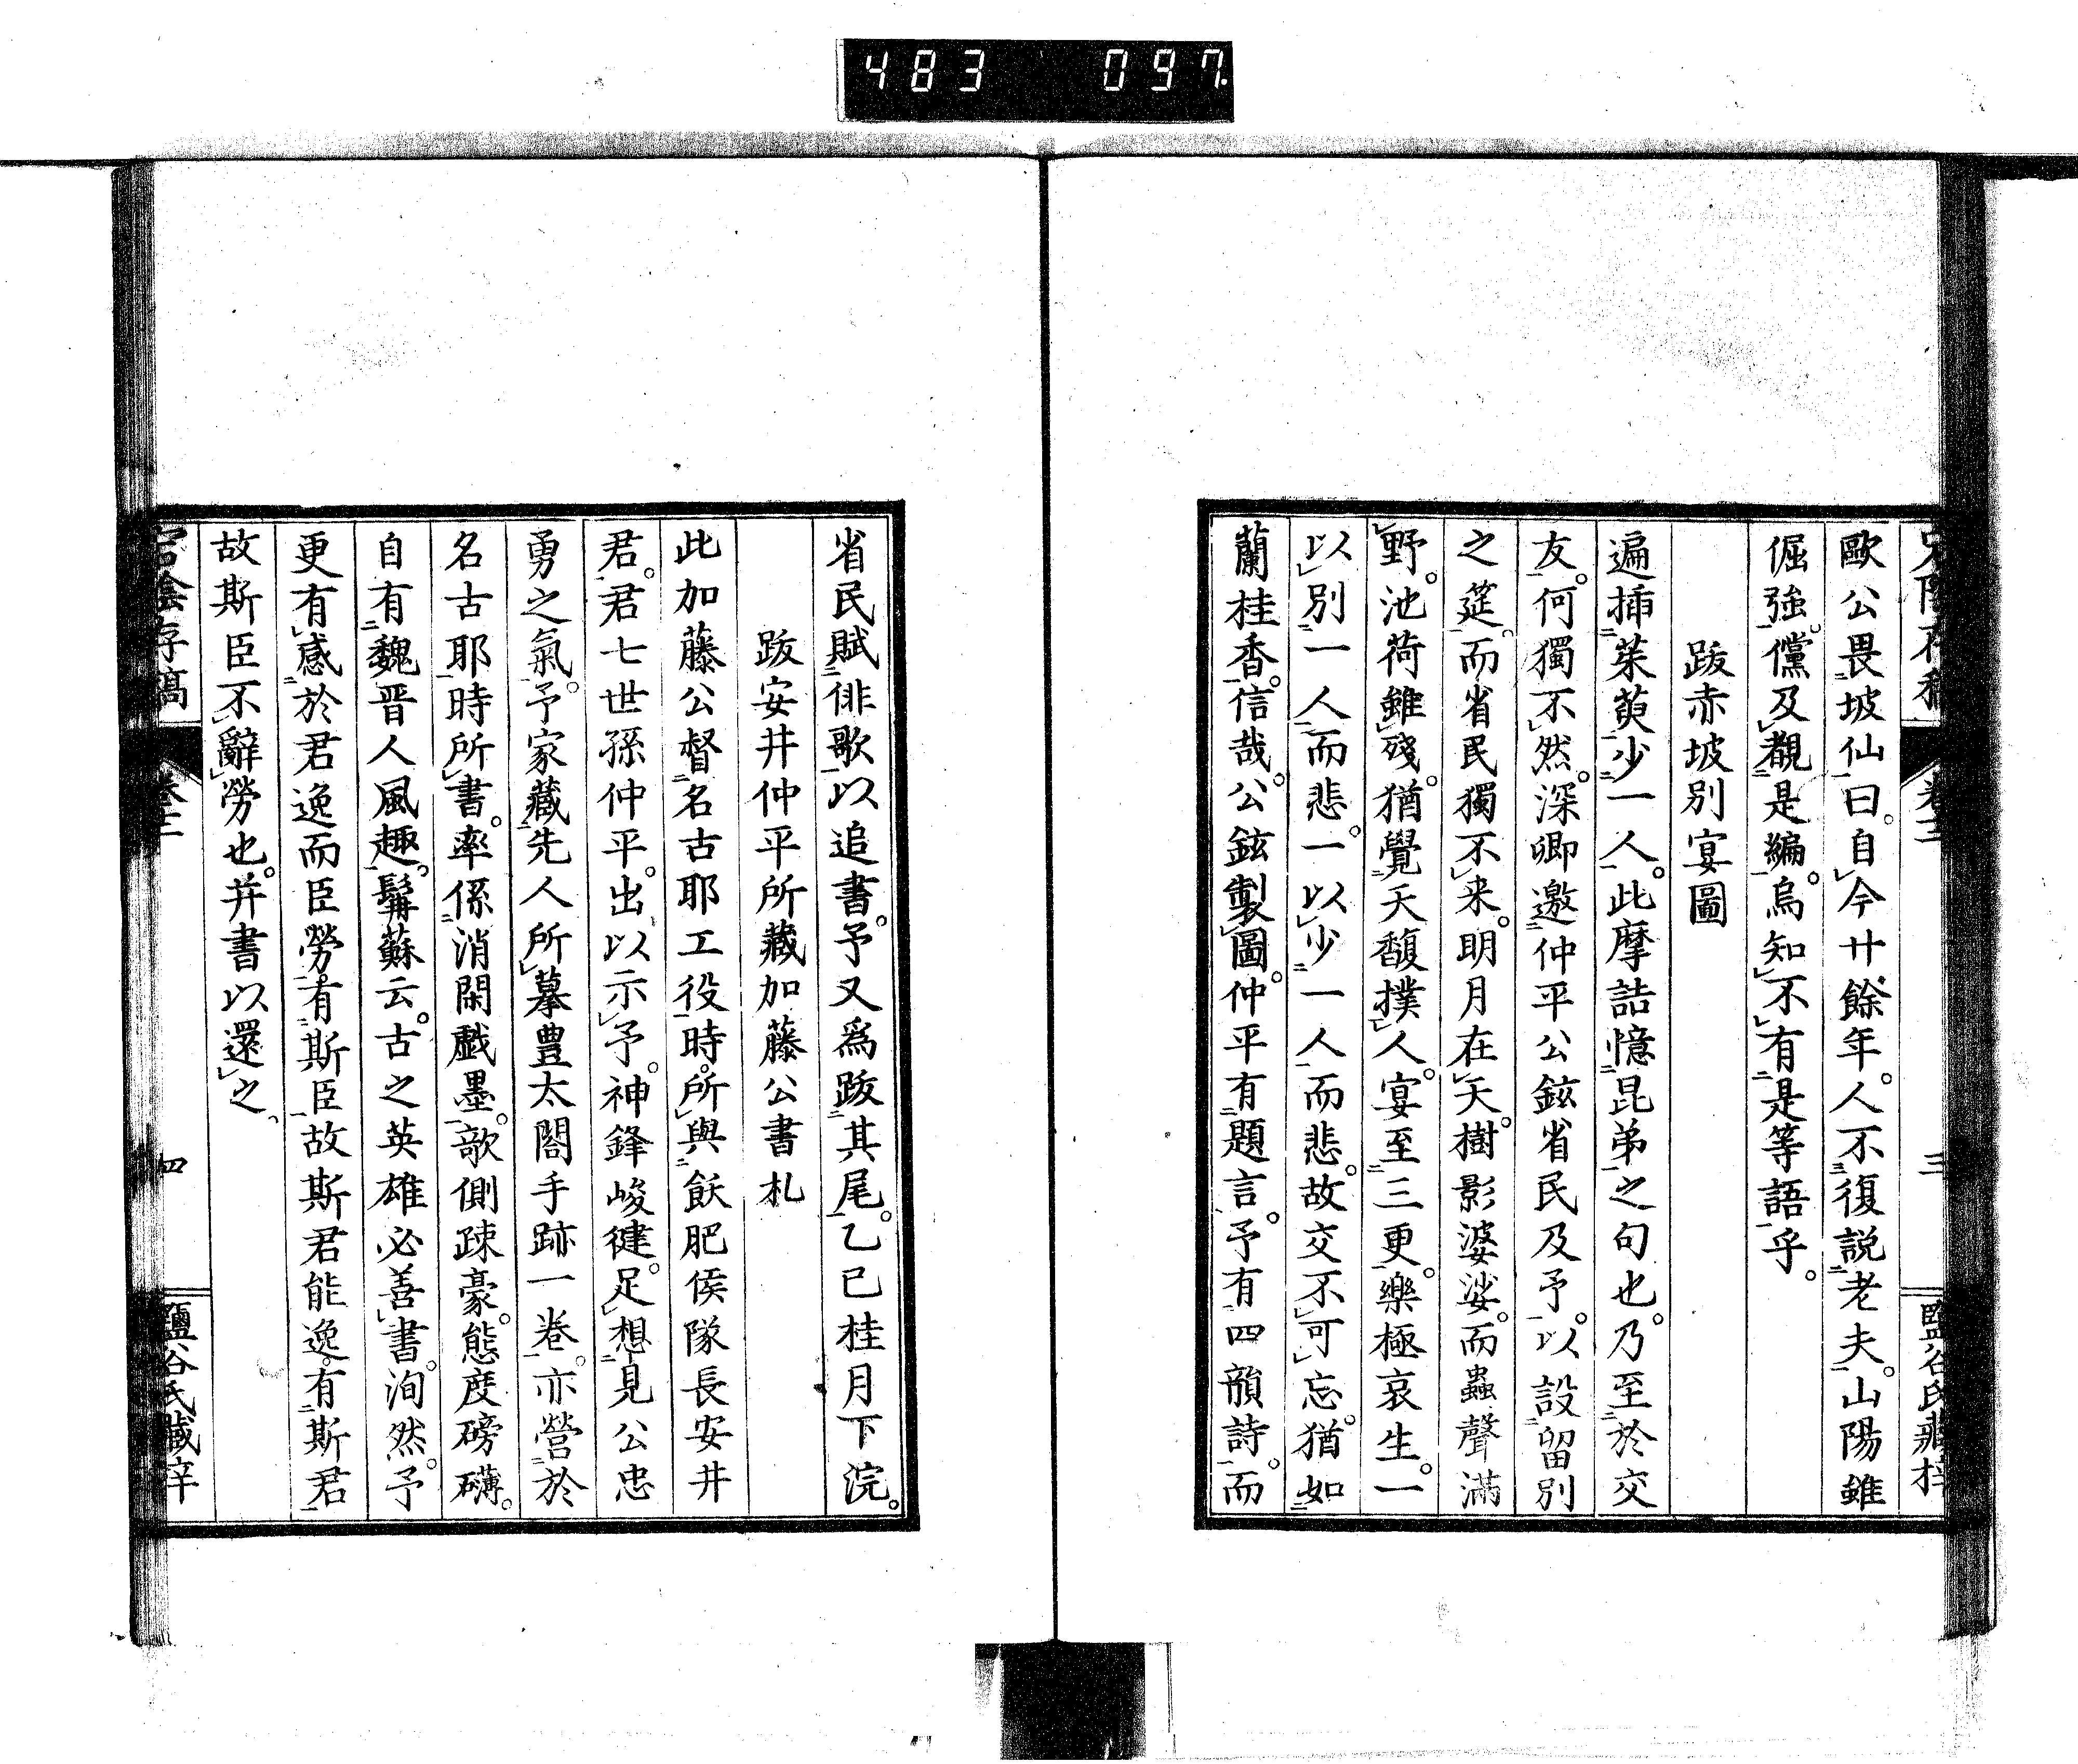 483 097
歐公畏坡仙曰。自今廿餘年。人不復説老夫。山陽雖
倔強。儻及覩是編。烏知不有是等語乎。
跋赤坡別宴圖
遍挿茱萸少一人。此摩詰憶昆弟之句也。乃至於交
友。何獨不然。深卿邀仲平公鉉省民及予。以設留別
之筵。而省民獨不来。明月在天。樹影婆娑。而蟲聲滿
野。池荷雖殘。猶覺天馥撲人。宴至三更。樂極哀生。一
以別一人而悲。一以少一人而悲。故交不可忘。猶如
蘭桂香。信哉。公鉉製圖。仲平有題言。予有四韻詩。而
卷十二
三
鹽谷氏藏梓
省民賦俳歌以追書。予又爲跋其尾。乙巳桂月下浣。
跋安井仲平所藏加藤公書札
此加藤公督名古耶工役時。所與飫肥侯隊長安井
君。君七世孫仲平。出以示予。神鋒峻健。足想見公忠
勇之氣。予家藏先人所摹豊太閤手跡一卷。亦營於
名古耶時所書。率係消閑戲墨。欹側疎豪。態度磅礴。
自有魏晋人風趣。髯蘇云。古之英雄必善書。洵然。予
更有感於君逸而臣勞。有斯臣故斯君能逸。有斯君
故斯臣不辭勞也。并書以還之、
宕陰存稿
四
鹽谷氏藏梓